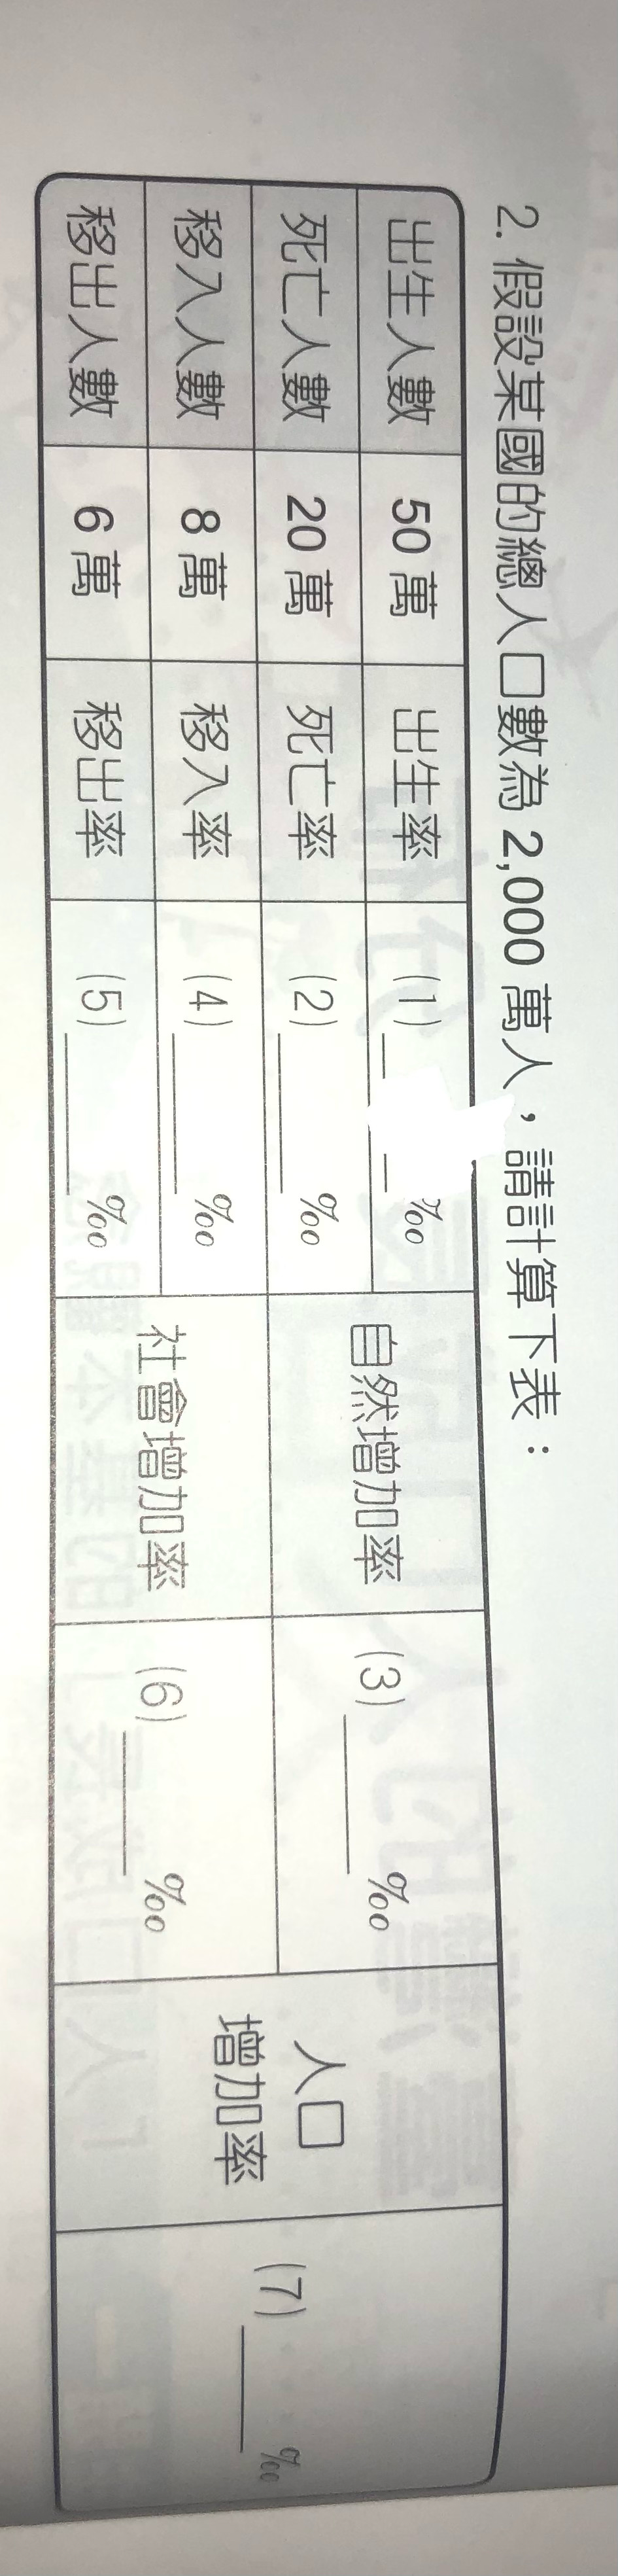 2. 假設某國的總人口數為 2,000 萬人，請計算下表：
出生人數 50 萬 出生率 (1)____‰ 自然增加率 (3)____‰ 人口增加率 (7)____‰
死亡人數 20 萬 死亡率 (2)____‰
移入人數 8 萬 移入率 (4)____‰ 社會增加率 (6)____‰
移出人數 6 萬 移出率 (5)____‰